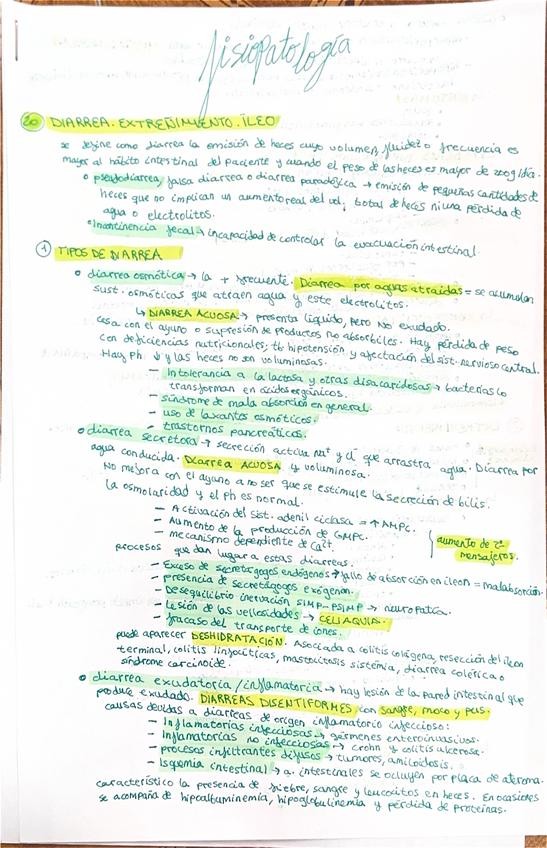 fisiopatología
20 DIARREA. EXTREÑIMIENTO. ÍLEO
se define como diarrea la emisión de heces cuyo volumen, fluidez o frecuencia es
mayor al hábito intestinal del paciente y cuando el peso de las heces es mayor de 200g/día.
o pseudodiarrea, falsa diarrea o diarrea paradójica → emisión de pequeñas cantidades de
heces que no implican un aumento real del vol. total de heces ni una pérdida de
agua o electrolitos.
o Incontinencia fecal → incapacidad de controlar la evacuación intestinal.
1 TIPOS DE DIARREA
o diarrea osmótica → la + frecuente. Diarrea por aguas atraídas = se acumulan
sust. osmóticas que atraen agua y este electrolitos.
↳ DIARREA ACUOSA → presenta líquido, pero no exudado.
cesa con el ayuno o supresión de productos no absorbibles. Hay pérdida de peso
con deficiencias nutricionales, tb hipotensión y afectación del sist. nervioso central.
Hay Ph ↓ y las heces no son voluminosas.
- Intolerancia a la lactosa y otras disacaridosas → bacterias lo
transforman en ácidos orgánicos.
- síndrome de mala absorción en general.
- uso de laxantes osmóticos.
- trastornos pancreáticos.
o diarrea secretora → secreción activa Na+ y Cl- que arrastra agua. Diarrea por
agua conducida. DIARREA ACUOSA y voluminosa.
No mejora con el ayuno a no ser que se estimule la secreción de bilis.
la osmolaridad y el ph es normal.
- Activación del sist. adenil ciclasa = ↑ AMPC.
- Aumento de la producción de GMPC.
- mecanismo dependiente de Ca2+.
aumento de 2º
mensajeros.
procesos que dan lugar a estas diarreas.
- Exceso de secretagogos endógenos → fallo de absorción en íleon = malabsorción.
- presencia de secretagogos exógenos.
- Desequilibrio inervación SIMP-PSIMP → neuropatía.
- Lesión de las vellosidades → CELIAQUÍA.
- fracaso del transporte de iones.
puede aparecer DESHIDRATACIÓN. Asociada a colitis colágena, resección del íleon
terminal, colitis linfocíticas, mastocitosis sistémia, diarrea colérica o
síndrome carcinoide.
o diarrea exudatoria / inflamatoria → hay lesión de la pared intestinal que
produce exudado. DIARREAS DISENTIFORMES con sangre, moco y pus.
causas debidas a diarreas de origen inflamatorio infeccioso:
- Inflamatorias infecciosas → gérmenes enteroinvasivos.
- Inflamatorias no infecciosas → crohn y colitis ulcerosa.
- procesos infiltrantes difusos → tumores, amiloidosis.
- Isquemia intestinal → a. intestinales se ocluyen por placa de ateroma.
característico la presencia de fiebre, sangre y leucocitos en heces. En ocasiones
se acompaña de hipoalbuminemia, hipoglobulinemia y pérdida de proteínas.